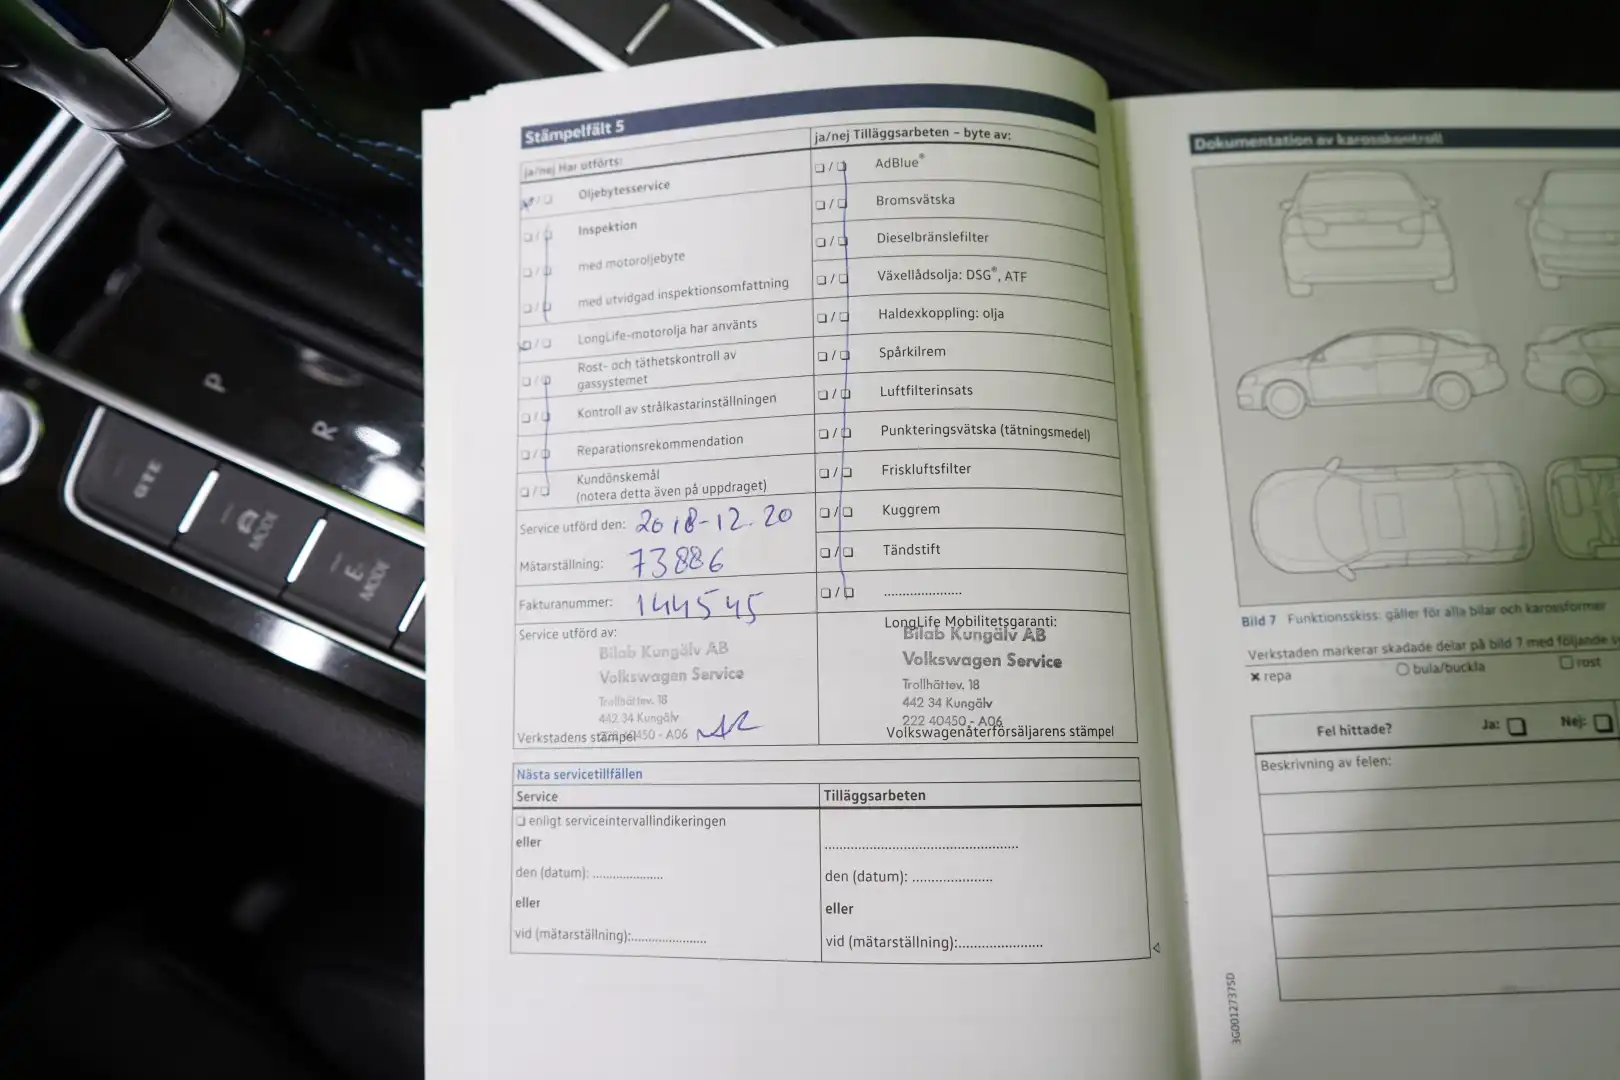 Stämpelfält 5
ja/nej Har utförts:
Oljebytesservice
Inspektion
med motoroljebyte
med utvidgad inspektionsomfattning
LongLife-motorolja har använts
Rost- och täthetskontroll av
gassystemet
Kontroll av strålkastarinställningen
Reparationsrekommendation
Kundönskemål
(notera detta även på uppdraget)
Service utförd den: 2018-12.20
Mätarställning: 73886
Fakturanummer: 144545
Service utförd av:
Bilab Kungälv AB
Volkswagen Service
Trollhättev. 18
442 34 Kungälv
222 40450 - A06
Verkstadens stämpel
ja/nej Tilläggsarbeten – byte av:
AdBlue®
Bromsvätska
Dieselbränslefilter
Växellådsolja: DSG®, ATF
Haldexkoppling: olja
Spårkilrem
Luftfilterinsats
Punkteringsvätska (tätningsmedel)
Friskluftsfilter
Kuggrem
Tändstift
.....................
LongLife Mobilitetsgaranti:
Bilab Kungälv AB
Volkswagen Service
Trollhättev. 18
442 34 Kungälv
222 40450 - A06
Volkswagenåterförsäljarens stämpel
Nästa servicetillfällen
Service
enligt serviceintervallindikeringen
eller
den (datum): ...................
eller
vid (mätarställning):....................
Tilläggsarbeten
..................................................
den (datum): .....................
eller
vid (mätarställning):......................
Dokumentation av karosskontroll
Bild 7 Funktionsskiss: gäller för alla bilar och karossformer
Verkstaden markerar skadade delar på bild 7 med följande
repa
bula/buckla
rost
Fel hittade? Ja: Nej:
Beskrivning av felen:
3G0012737SD
P
R
GTE
MODE
E-
MODE